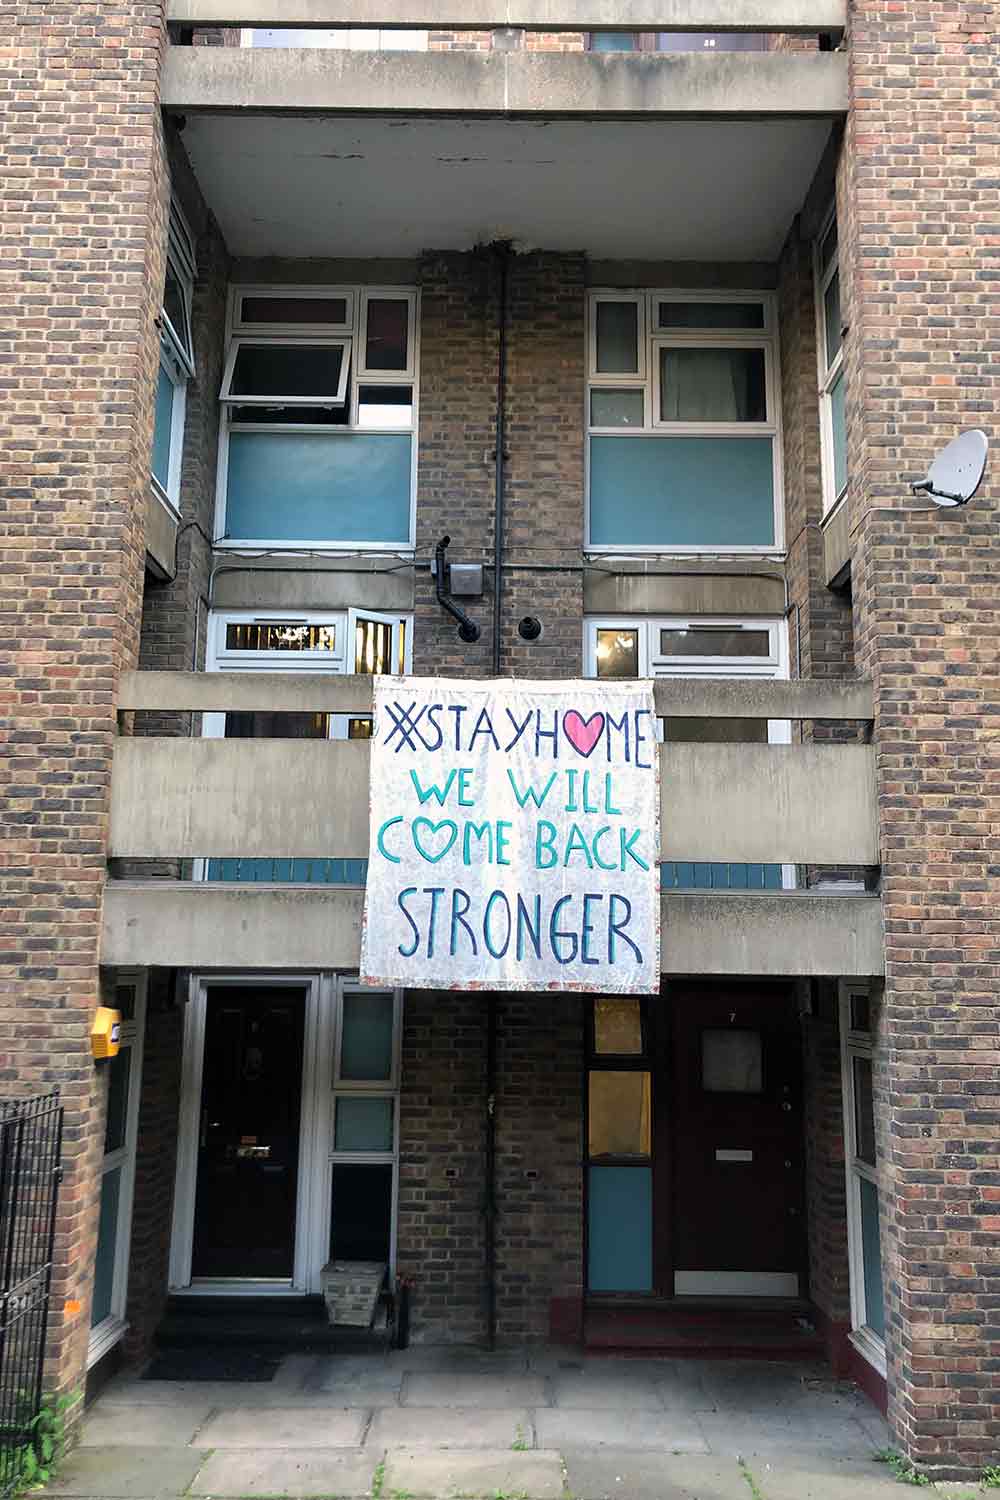 #STAYHOME
WE WILL
COME BACK
STRONGER
7